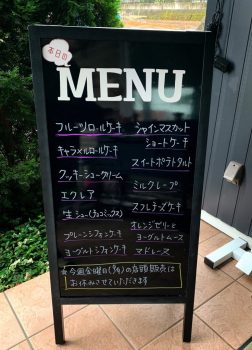 本日の
MENU
フルーツロールケーキ
キャラメルロールケーキ
クッキーシュークリーム
エクレア
生シュー(チョコミックス)
プレーンシフォンケーキ
ヨーグルトシフォンケーキ
シャインマスカット
ショートケーキ
スイートポテトタルト
ミルクレープ
スフレチーズケーキ
オレンジゼリーと
ヨーグルトムース
マドレーヌ
★今週金曜日の店頭販売は
お休みさせていただきます